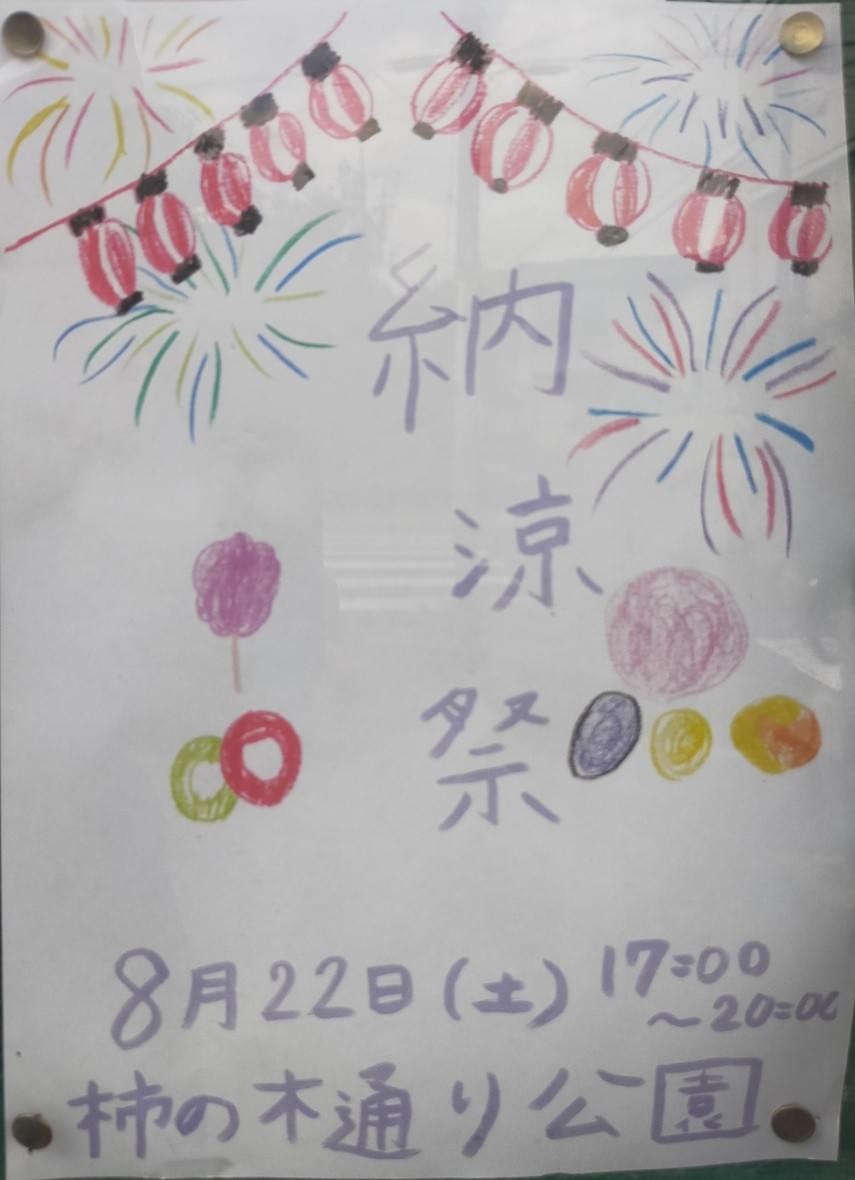 納涼祭
8月22日(土) 17:00
~20:00
柿の木通り公園